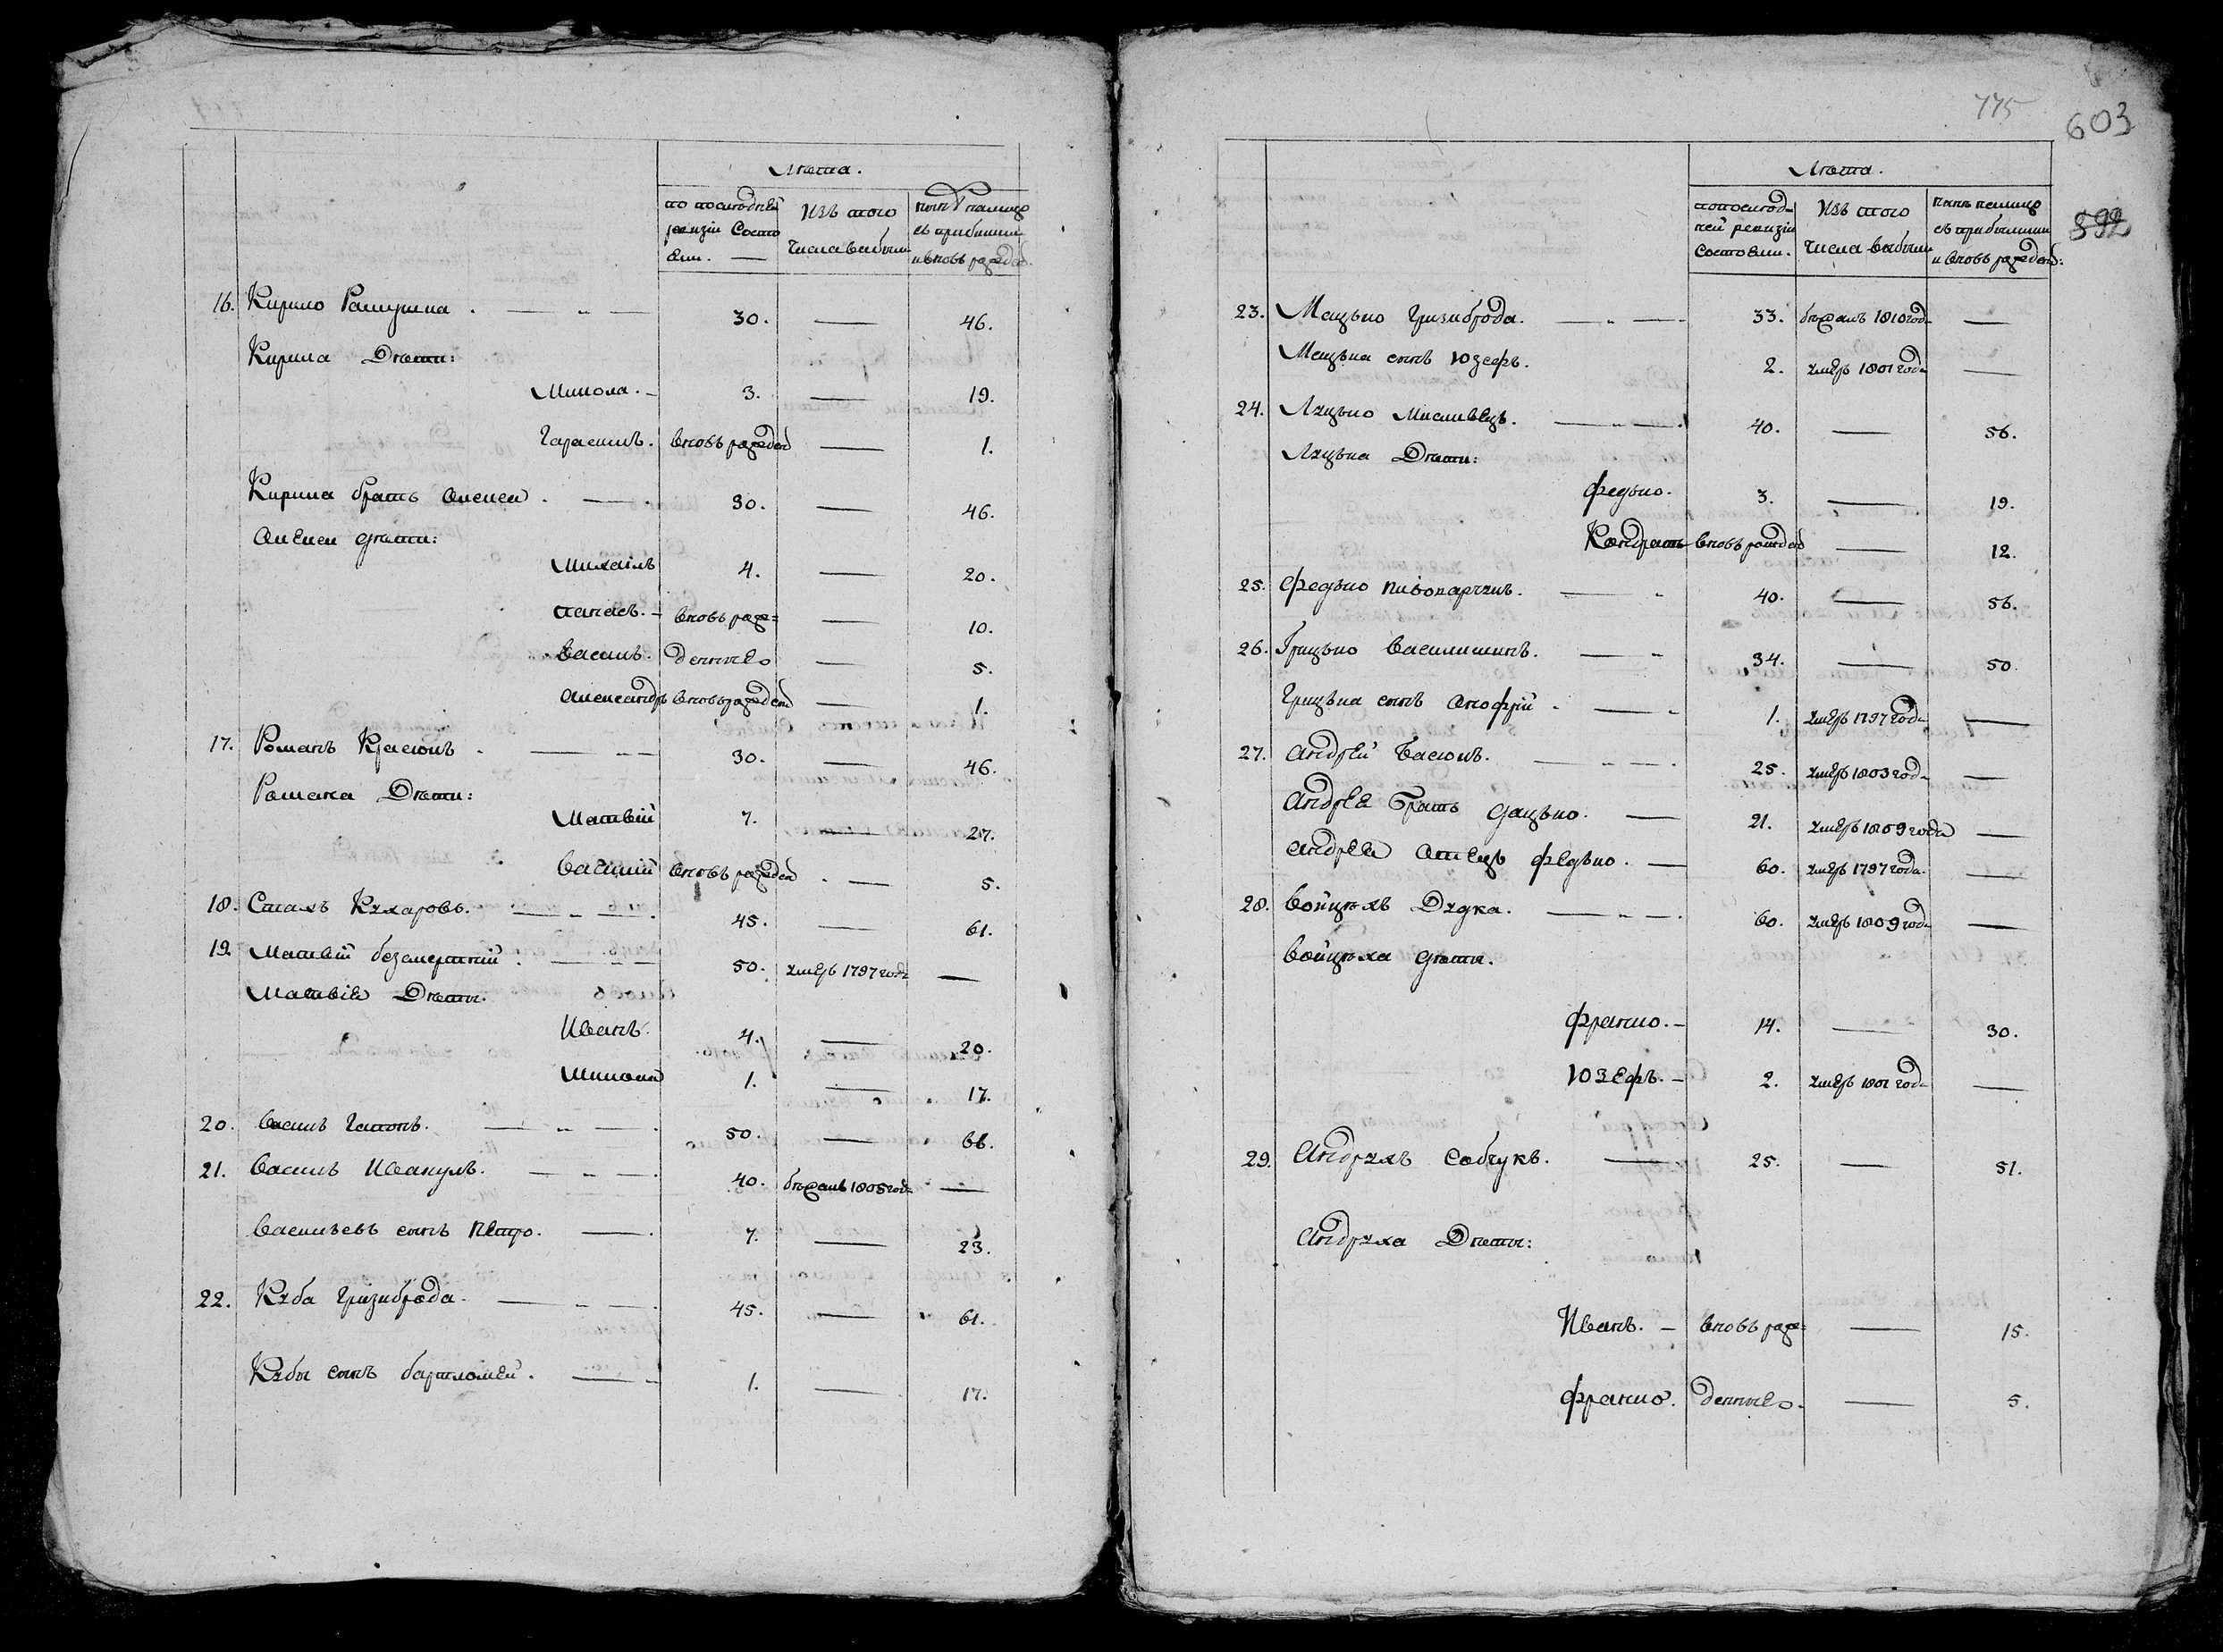 Лѣта.
по последней ревизіи состояли. — изъ того числа выбыли нынѣ налицо съ прибылыми и вновь рожден.
16. Кирило Ратушна . — „ — 30. — 46.
Кирила Дѣти:
Микола. — 3. — 19.
Гарасимъ. вновь рожден — 1.
Кирила братъ Алексей . — 30. — 46.
Алексея дѣти:
Михаилъ 4. — 20.
Панасъ. — вновь рож= — 10.
Василь. денные — 5.
Александръ вновь рожден — 1.
17. Романъ Красюкъ . — 30. — 46.
Романа Дѣти:
Матвій 7. — 27.
Василій вновь рожден . — 5.
18. Стахъ Кухаровъ. — „ — 45. — 61.
19. Матвій безсмертній . — 50. умеръ 1797 года —
Матвія Дѣти.
Иванъ. 4. — 20.
Микола 1. — 17.
20. Василь Гапонъ. — „ — 50. — 66.
21. Василь Иванукъ. — „ — 40. бѣжалъ 1805 года —
Васильевъ сынъ Петро. — 7. — 23.
22. Куба Гризиброда. — „ — 45. — 61.
Кубы сынъ бартломей . — 1. — 17.
775
603
592
Лѣта.
по последней ревизіи состояли. изъ того числа выбыли нынѣ налицо съ прибылыми и вновь рожден:
23. Мацько Гризиброда. — „ — 33. бѣжалъ 1810 года —
Мацька сынъ Юзефъ. 2. умеръ 1801 года —
24. Луцько Мисливецъ. — „ — 40. — 56.
Луцька Дѣти:
Федько. 3. — 19.
Кондратъ вновь рожден — 12.
25. Федько Пивоварчук. — „ 40. — 56.
26. Грицько Василишинъ. — „ 34. — 50.
Грицька сынъ Онофрій . — 1. умеръ 1797 года —
27. Андрей Басюкъ. — „ — 25. умеръ 1803 года —
Андрея Братъ Дацько. — 21. умеръ 1809 года —
Андрея Отецъ Федько. — 60. умеръ 1797 года. —
28. Войцѣхъ Дудка. — „ — 60. умеръ 1809 года —
Войцѣха дѣти.
Франко. — 14. — 30.
Юзефъ. — 2. умеръ 1801 года —
29. Андрухъ Собчукъ. — 25. — 51.
Андруха Дѣти:
Иванъ. — вновь рож= — 15.
Франко. денные. — 5.